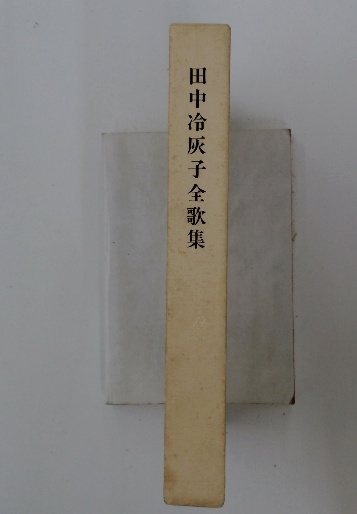 田中冷灰子全歌集